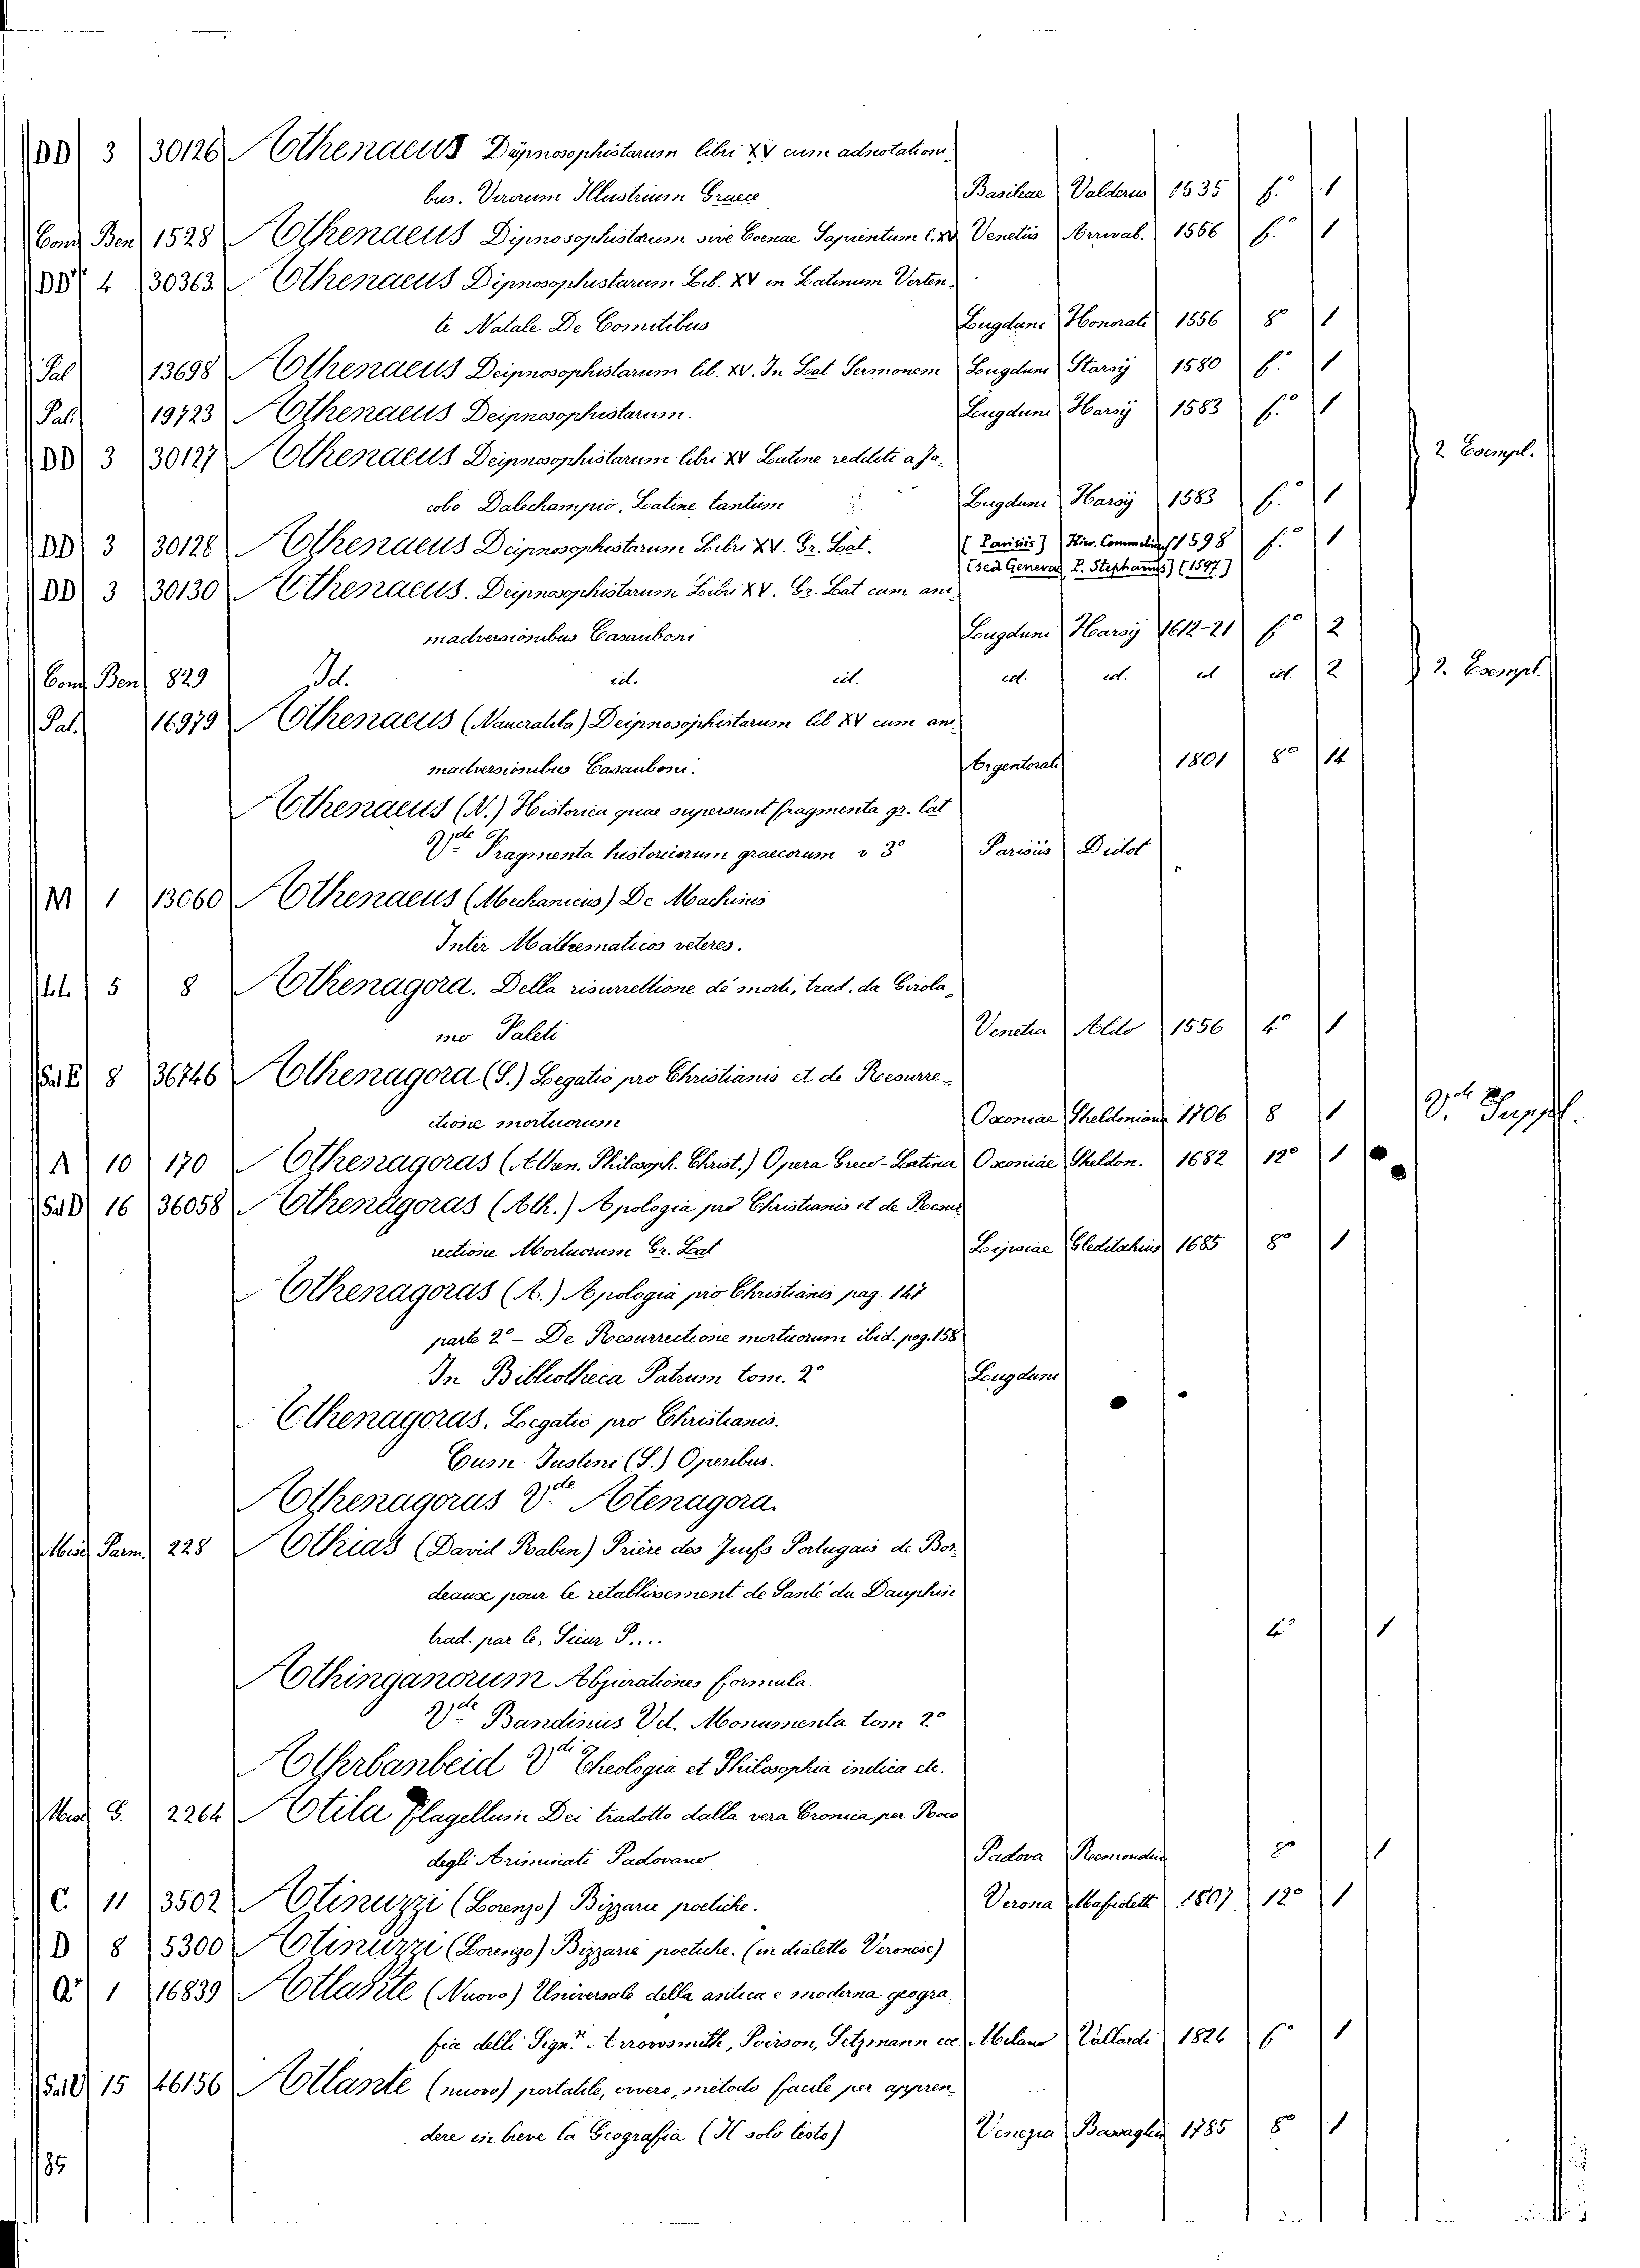 DD 3 30126 Athenaeus Dipnosophistarum libri XV cum adnotationi
bus. Virorum Illustrium Graece Basileae Valderus 1535 f.° 1
Conv Ben 1528 Athenaeus Dipnosophistarum sive Coenae Sapientum l. XV Venetiis Arrivab. 1556 f.° 1
DD 4 30363 Athenaeus Dipnosophistarum Lib. XV in Latinum Verten
te Natale De Comitibus Lugduni Honorati 1556 8 1
Pal 13698 Athenaeus Deipnosophistarum lib. XV. In Lat Sermonem Lugduni Harsÿ 1580 f.° 1
Pal. 19723 Athenaeus Deipnosophistarum. Lugduni Harsÿ 1583 f.° 1
DD 3 30127 Athenaeus Deipnosophistarum libri XV Latine redditi a Ja- 2 Esempl.
cobo Dalechampio. Latine tantum Lugduni Harsÿ 1583 f.° 1
DD 3 30128 Athenaeus Deipnosophistarum Libri XV. Gr. Lat. [Parisiis] Hier. Commelinus 1598 f.° 1
DD 3 30130 Athenaeus. Deipnosophistarum Libri XV. Gr. Lat cum ani [sed Genevae P. Stephanus] [1597]
madversionibus Casauboni Lugduni Harsÿ 1612-21 f° 2
Conv Ben 829 Id. id. id. id. id. id. id. 2 2. Esempl.
Pal. 16979 Athenaeus (Naucratita) Deipnosophistarum lib XV cum ani
madversionibus Casauboni. Argentorati 1801 8° 14
Athenaeus (N.) Historica quae supersunt fragmenta gr. lat
V.de Fragmenta historicorum graecorum v 3° Parisiis Didot
M 1 13060 Athenaeus (Mechanicus) De Machinis
Inter Mathematicos veteres.
5 8 Athenagora. Della risurrettione de morti, trad. da Girola
mo Faleti Venetia Aldo 1556 4° 1
Sal E 8 36746 Athenagora (S.) Legatio pro Christianis et de Resurre-
ctione mortuorum Oxoniae Sheldoniano 1706 8 1 V.de Suppl.
A 10 170 Athenagoras (Athen. Philosoph. Christ.) Opera Greco-Latina Oxoniae Sheldon. 1682 12° 1
Sal D 16 36058 Athenagoras (Ath.) Apologia pro Christianis et de Resur
rectione Mortuorum Gr. Lat Lipsiae Gleditschius 1685 8° 1
Athenagoras (A.) Apologia pro Christianis pag. 147
parte 2° - De Resurrectione mortuorum ibid. pag. 158
In Bibliotheca Patrum tom. 2° Lugduni
Athenagoras. Legatio pro Christianis.
Cum Justini (S.) Operibus.
Athenagoras V.de Atenagora.
Misc Parm 228 Athias (David Rabin) Prière des Juifs Portugais de Bor
deaux pour le retablissement de Santé du Dauphin
trad. par le Sieur P.... 4° 1
Athinganorum Abjurationes formula.
V.de Bandinius Vet. Monumenta tom 2°
Athrbanbeid V.di Theologia et Philosophia indica etc.
Misc E. 2264 Atila Flagellum Dei tradotto dalla vera Cronica per Roco
degli Ariminati Padovano Padova Remondini 8° 1
C. 11 3502 Atinuzzi (Lorenzo) Bizzarie poetiche. Verona 1807 12° 1
D 8 5300 Atinuzzi (Lorenzo) Bizzarie poetiche. (in dialetto Veronese)
1 16839 Atlante (Nuovo) Universale della antica e moderna geogra-
fia delli Sign.ri Arrowsmith, Poirson, Sotzmann ecc Milano Vallardi 1826 f° 1
Sal D 15 46156 Atlante (nuovo) portatile, ovvero, metodo facile per appren-
dere in breve la Geografia (Il solo testo) Venezia Bassaglia 1785 8° 1
185